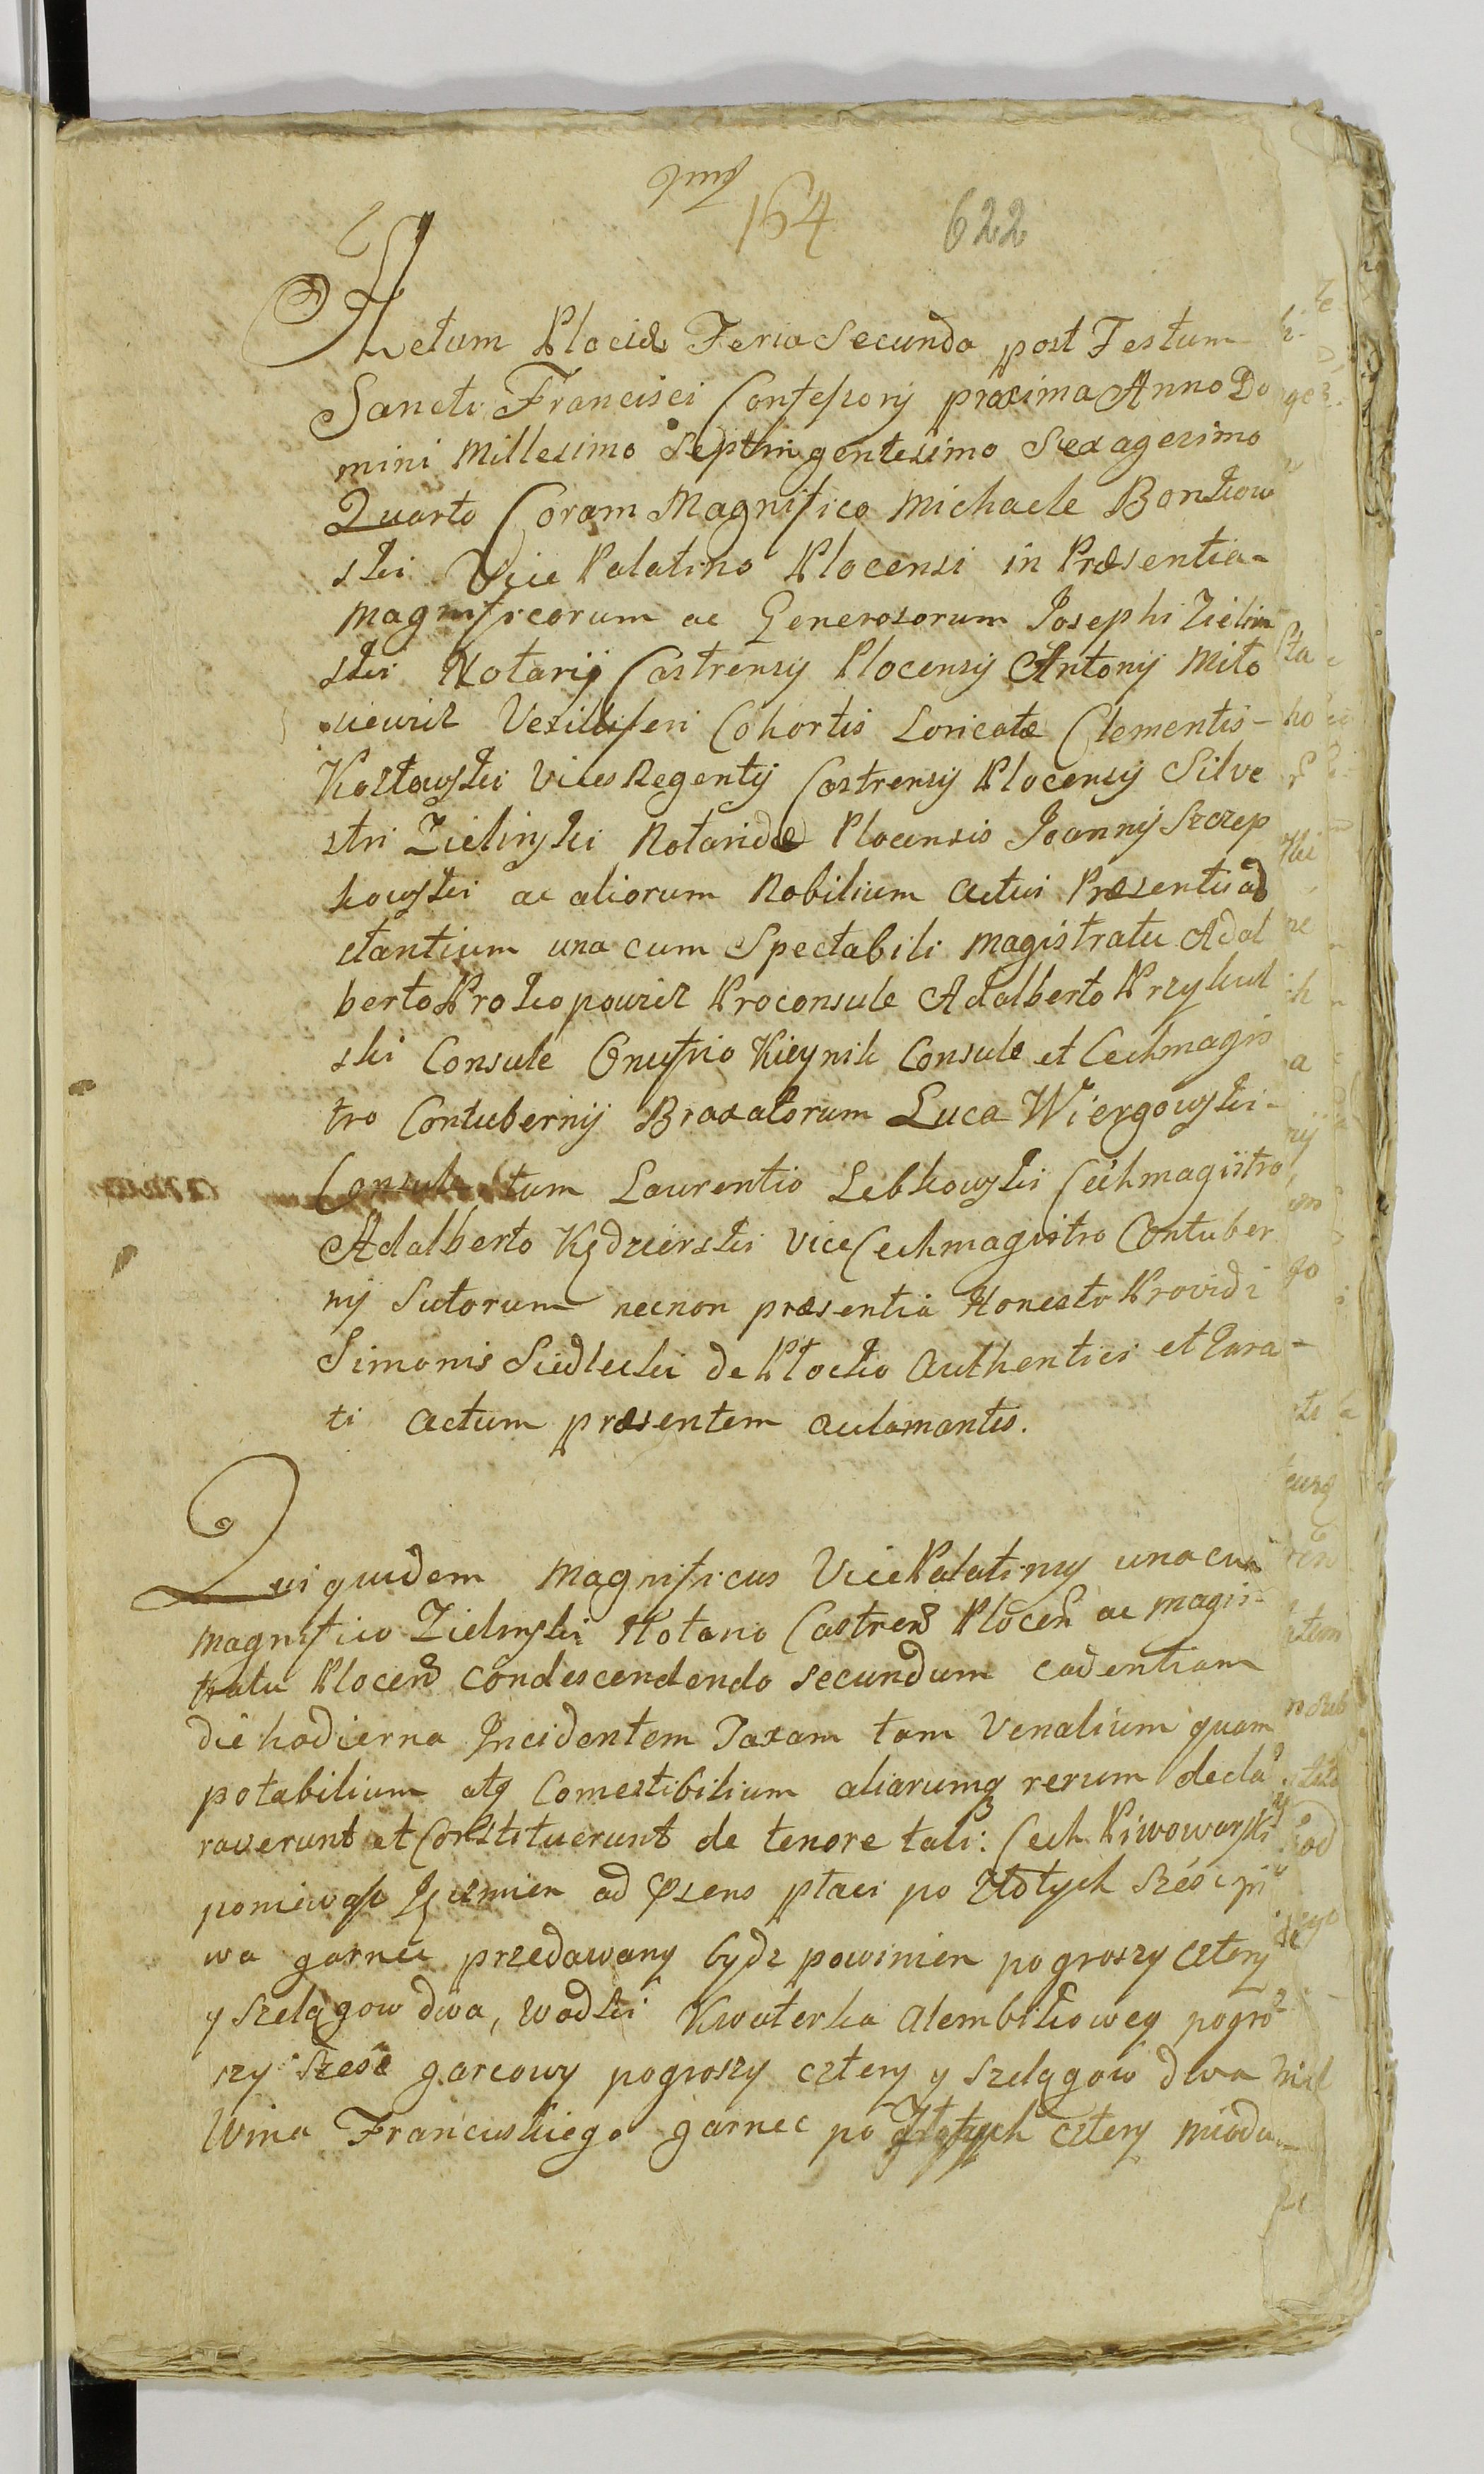 164 622
Actum Plociæ Feria Secunda post Festum
Sancti Francisci Confessorij proxima Anno Do
mini Millesimo Septingentesimo Sexagesimo
Quarto Coram Magnifico Michaele Bonkow
ski Vice Palatino Plocensi in Præsentia-
Magnificorum ac Generosorum Josephi Zielin
ski Notarij Castrensij Plocensij Antonij Mito
Vexilliferi Cohortis Loricatæ Clementis-
Kozłowski Vices Regentij Castrensij Plocensij Silve
stri Zielinski Plocensis Joannij Szczep
kowski ac aliorum Nobilium actui Præsenti ad
stantium una cum Spectabili Magistratu Adal
berto Prokopowicz Proconsule Adalberto
ski Consule Onufrio Kieynik Consule et Cechmagis
tro Contubernij Braxatorum Luca Wiergowski-
Consule tum Laurentio Lebkowski Cechmagistro
Adalberto Kędzierski Vice Cechmagistro Contuber
nij Sutorum necnon præsentia Honesto Providi
Simonis Siedlecki de Płocko Authentici et Jura-
ti actum præsentem aclamantis.
Qui quidem Magnificus Vice Palatinus una cum
Magnifico Zielinski Notario Castren Plocen ac Magis-
tratu Plocen condescendendo secundum cadentiam
die hodierna Incidentem Taxam tam Venalium quam
potabilium atq Comestibilium aliarumq rerum decla
raverunt et Constituerunt de tenore tali: Cech Piwowarski
poniewasz Jęczmien ad płaci po złotych szesc pi
wa garniec przedawany bydz powinien po groszy cztery
y szelągow dwa, wodki Kwaterka alembikowey po gro
szy szesc garcowy po groszy cztery y szelągow dwa
Wina Francuskiego garnec po złotych cztery miodu-